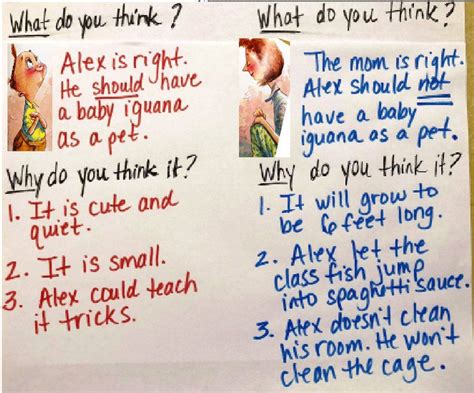 What do you think?
Alex is right.
He should have
a baby iguana
as a pet.
Why do you think it?
1. It is cute and
quiet.
2. It is small.
3. Alex could teach
it tricks.
What do you think?
The mom is right.
Alex should not
have a baby
iguana as a pet.
Why do you think it?
1. It will grow to
be 6 feet long.
2. Alex let the
class fish jump
into spaghetti sauce.
3. Alex doesn't clean
his room. He won't
clean the cage.